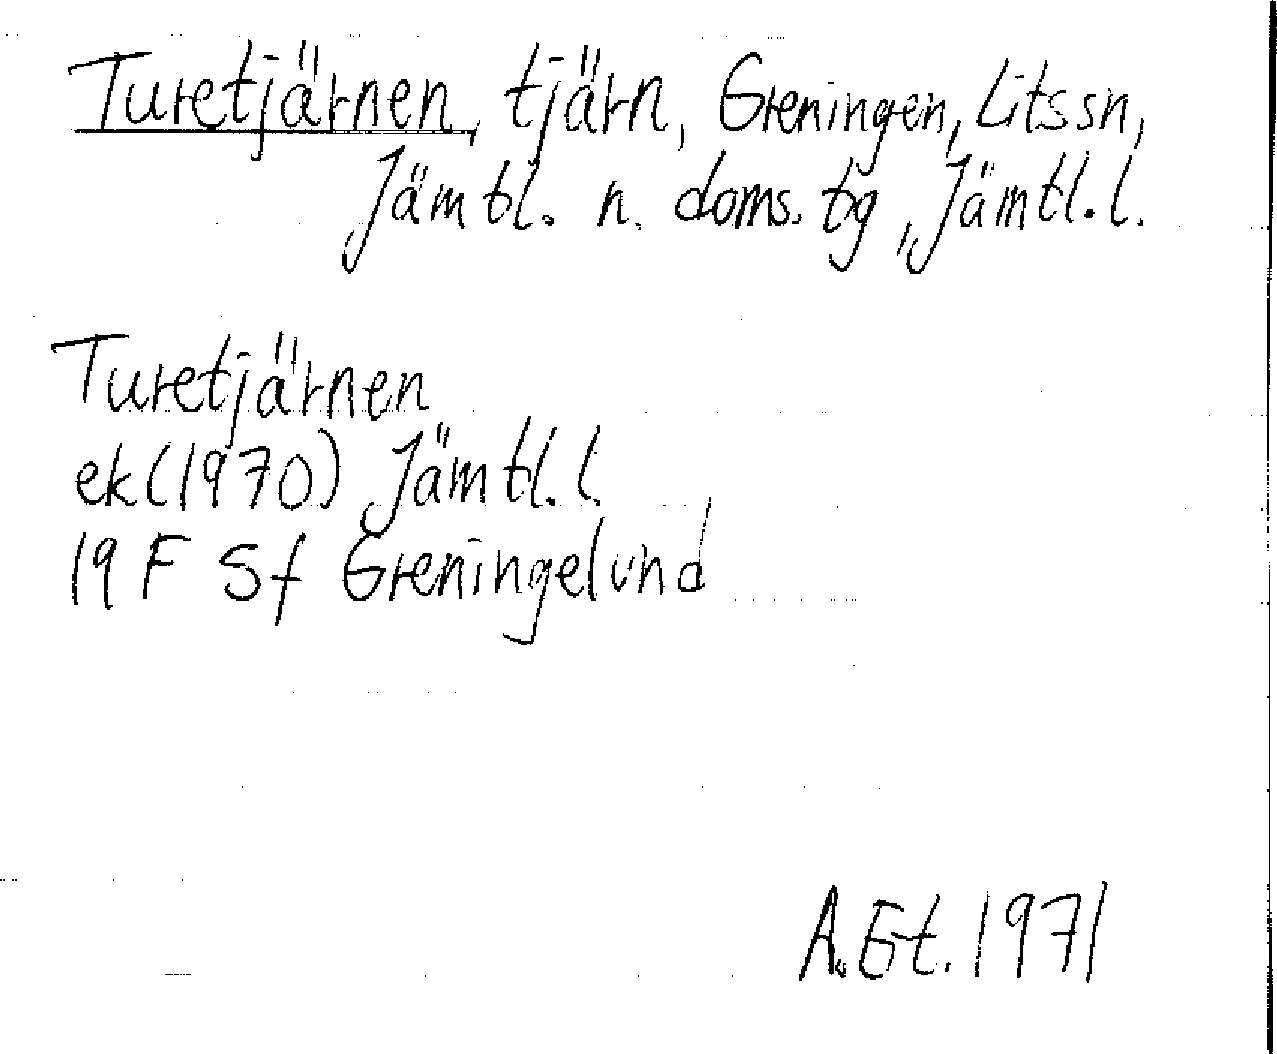 Turetjärnen, tjärn, Greningen, Lits sn,
Jämtl. n. doms. tg, Jämtl. l.
Turetjärnen
ek (1970) Jämtl. l.
19 F Sf Greningelund
A. Gt. 1971